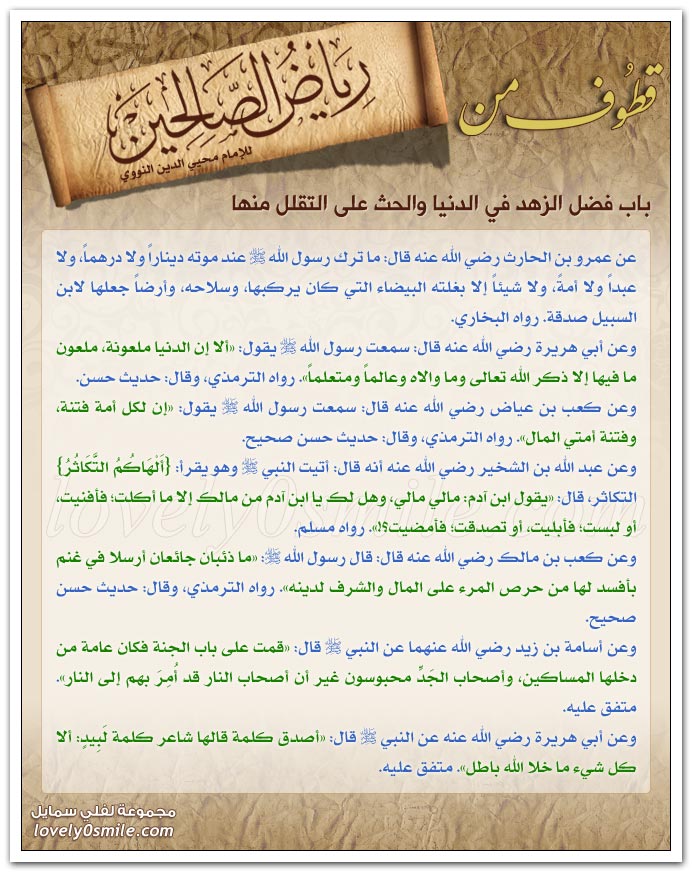 قطوف من
رياض الصالحين
للإمام محيي الدين النووي
باب فضل الزهد في الدنيا والحث على التقلل منها
عن عمرو بن الحارث رضي الله عنه قال: ما ترك رسول الله ﷺ عند موته ديناراً ولا درهماً، ولا
عبداً ولا أمةً، ولا شيئاً إلا بغلته البيضاء التي كان يركبها، وسلاحه، وأرضاً جعلها لابن
السبيل صدقة. رواه البخاري.
وعن أبي هريرة رضي الله عنه قال: سمعت رسول الله ﷺ يقول: «ألا إن الدنيا ملعونة، ملعون
ما فيها إلا ذكر الله تعالى وما والاه وعالماً ومتعلماً». رواه الترمذي، وقال: حديث حسن.
وعن كعب بن عياض رضي الله عنه قال: سمعت رسول الله ﷺ يقول: «إن لكل أمة فتنة،
وفتنة أمتي المال». رواه الترمذي، وقال: حديث حسن صحيح.
وعن عبد الله بن الشخير رضي الله عنه أنه قال: أتيت النبي ﷺ وهو يقرأ: {أَلْهَاكُمُ التَّكَاثُرُ}
التكاثر، قال: «يقول ابن آدم: مالي مالي، وهل لك يا ابن آدم من مالك إلا ما أكلت؛ فأفنيت،
أو لبست؛ فأبليت، أو تصدقت؛ فأمضيت؟!». رواه مسلم.
وعن كعب بن مالك رضي الله عنه قال: قال رسول الله ﷺ: «ما ذئبان جائعان أرسلا في غنم
بأفسد لها من حرص المرء على المال والشرف لدينه». رواه الترمذي، وقال: حديث حسن
صحيح.
وعن أسامة بن زيد رضي الله عنهما عن النبي ﷺ قال: «قمت على باب الجنة فكان عامة من
دخلها المساكين، وأصحاب الجَدِّ محبوسون غير أن أصحاب النار قد أُمِرَ بهم إلى النار».
متفق عليه.
وعن أبي هريرة رضي الله عنه عن النبي ﷺ قال: «أصدق كلمة قالها شاعر كلمة لَبِيدٍ: ألا
كل شيء ما خلا الله باطل». متفق عليه.
lovely0smile.com
مجموعة لفلي سمايل
lovely0smile.com